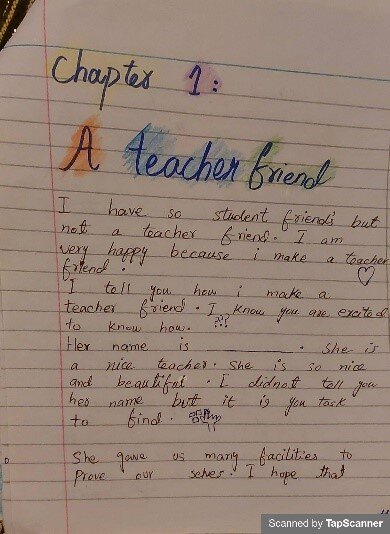 Chapter 1:
A teacher friend
I have so student friends but
not a teacher friend. I am
very happy because i make a teacher
friend.
I tell you how i make a
teacher friend. I know you are excited
to know how. ??
Her name is ________. She is
a nice teacher. She is so nice
and beautiful. I didnot tell you
her name but it is you task
to find.
She gave us many facilities to
Prove our selves. I hope that
Scanned by TapScanner